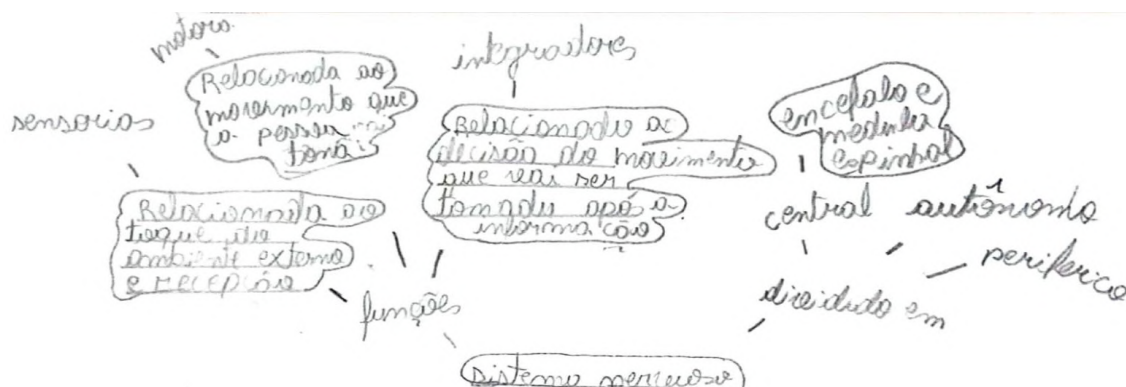 motora
Relacionada ao
movimento que
a pessoa vai
toma
sensorias
Relacionada ao
toque do
ambiente externo
e recepção
integradores
Relacionado a
decisão do movimento
que vai ser
tomada após a
informação
encefalo e
medula
espinhal
central
autônomo
periferico
funções
dividido em
sistema nervoso